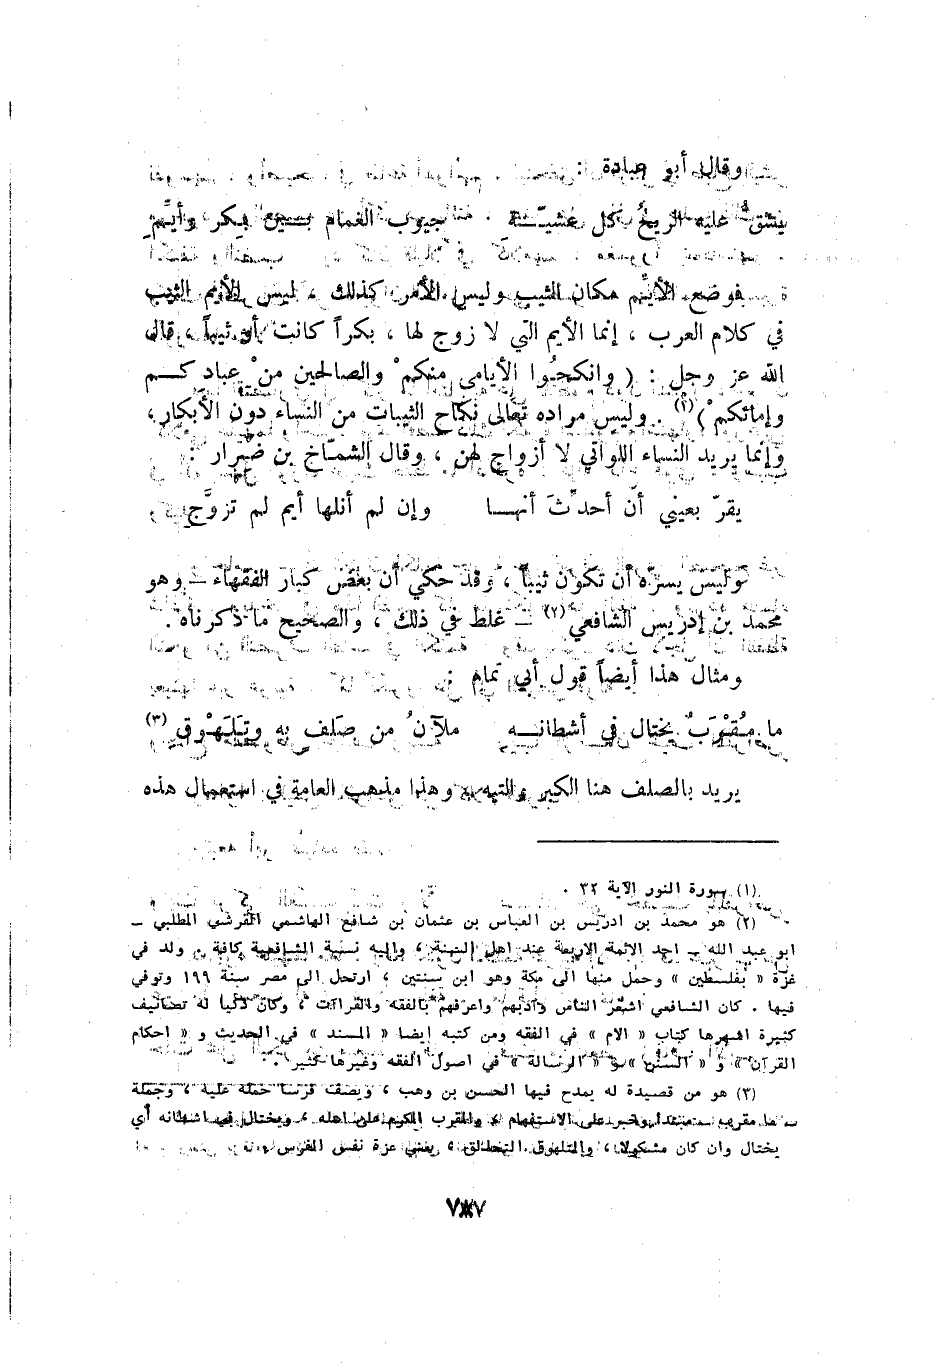 وقال أبو عبادة :
يشقُّ عليه الريحُ كل عشيّـــة جيوب الغمام بـــين بكر وأيّــم
فوضع الأيِّم مكان الثيب وليس الأمر كذلك ، ليس الأيم الثيب
في كلام العرب ، إنما الأيم التي لا زوج لها ، بكراً كانت أو ثيباً ، قال
الله عز وجل : ( وانكحُوا الأيامى منكمْ والصالحين منْ عباد كـــم
وإمائكمْ )(١) . وليس مراده تعالى نكاح الثيبات من النساء دون الأبكار ،
وإنما يريد النساء اللواتي لا أزواج لهن ، وقال الشمّاخ بن ضرار :
يقرّ بعيني أنّ أحدِّثَ أنهـــا وإن لم أنلها أيم لم تزوَّج
وليس يسرّه أن تكون ثيباً ، وقد حكي أن بعض كبار الفقهاء – وهو
محمد بن إدريس الشافعي(٢) – غلط في ذلك ، والصحيح ما ذكرناه .
ومثال هذا أيضاً قول أبي تمام :
ما مُقْرَبٌ يختال في أشطانـــه ملآنُ من صَلف به وتَلَهْوُق (٣)
يريد بالصلف هنا الكبر والتيه ، وهذا مذهب العامة في استعمال هذه
(١) سورة النور الآية ٣٢ .
(٢) هو محمد بن ادريس بن العباس بن عثمان بن شافع الهاشمي القرشي المطلبي –
ابو عبد الله – احد الائمة الاربعة عند اهل السنة ، واليه نسبة الشافعية كافة . ولد في
غزة « بفلسطين » وحمل منها الى مكة وهو ابن سنتين ، ارتحل الى مصر سنة ١٩٩ وتوفي
فيها . كان الشافعي اشعر الناس وآدبهم واعرفهم بالفقه والقراات ، وكان ذكيا له تصانيف
كثيرة اشهرها كتاب « الام » في الفقه ومن كتبه ايضا « المسند » في الحديث و « احكام
القرآن » و « السنن » و « الرسالة » في اصول الفقه وغيرها كثير .
(٣) هو من قصيدة له يمدح فيها الحسن بن وهب ، ويصف فرسا حمله عليه ، وجملة
ما مقرب مبتدا وخبر على الاستفهام ، والمقرب المكرم على اهله ، ويختال في اشطانه أي
يختال وان كان مشكولا ، والتلهوق التحذلق ، يعني عزة نفس الفرس